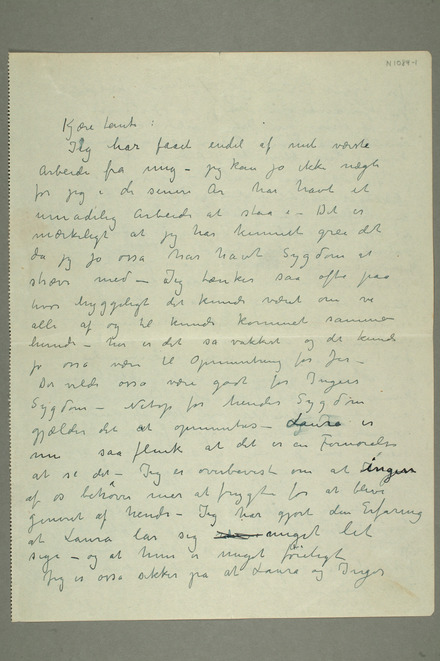 N1089-1
Kjære tante :
Jeg har faaet endel af mit værste
Arbeide fra mig – jeg kan jo ikke nægte
for jeg i de senere Aar har havt et
umaadelig Arbeide at staa i – Det er
mærkeligt at jeg har kunnet greie det
da jeg jo ossa har havt Sygdom at
stræve med – Jeg tænker saa ofte paa
hvor hyggeligt det kunde været om vi
alle af og til kunde kommet sammen
hende – her er det så vakkert og det kunde
jo ossa være til Opmuntring for
Det vilde ossa være godt for Ingers
Sygdom – Netop for hendes Sygdom
gjælder det at opmuntres – Laura er
nu saa flink at det er en Fornøielse
at se det – Jeg er overbevist om at ingen
af os behøver mer at frygte for at blive
generet af hende – Jeg har gjort den Erfaring
at Laura lar sig meget let
sige – og at hun er meget føieligt
Jeg er ossa sikker på at Laura og Inger